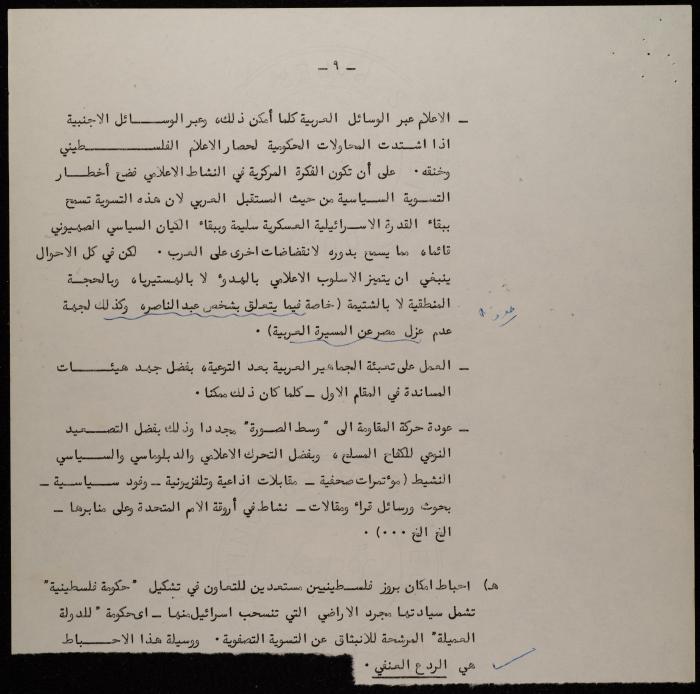 — ٩ —
— الاعلام عبر الوسائل العربية كلما أمكن ذلك، وعبر الوسائل الاجنبية
اذا اشتدت المحاولات الحكومية لحصار الاعلام الفلسطيني
وخنقه . على أن تكون الفكرة المركزية في النشاط الاعلامي فضح أخطار
التسوية السياسية من حيث المستقبل العربي لان هذه التسوية تسمح
ببقاء القدرة الاسرائيلية العسكرية سليمة وببقاء الكيان السياسي الصهيوني
قائما، مما يسمح بدوره لانقضاضات اخرى على العرب . لكن في كل الاحوال
ينبغي ان يتميز الاسلوب الاعلامي بالهدوء لا بالهستيريا، وبالحجة
المنطقية لا بالشتيمة (خاصة فيما يتعلق بشخص عبد الناصر، وكذلك لجهة
عدم عزل مصر عن المسيرة العربية) .
— العمل على تعبئة الجماهير العربية بعد التوعية، بفضل جهد هيئات
المساندة في المقام الاول — كلما كان ذلك ممكنا .
— عودة حركة المقاومة الى "وسط الصورة" مجددا وذلك بفضل التصعيد
النوعي للكفاح المسلح، وبفضل التحرك الاعلامي والدبلوماسي والسياسي
النشيط (مؤتمرات صحفية — مقابلات اذاعية وتلفزيونية — وفود سياسية —
بحوث ورسائل قراء ومقالات — نشاط في أروقة الامم المتحدة وعلى منابرها —
الخ الخ ...) .
هـ) احباط امكان بروز فلسطينيين مستعدين للتعاون في تشكيل "حكومة فلسطينية"
تشمل سيادتها مجرد الاراضي التي تنسحب اسرائيل منها — اى حكومة "للدولة
العميلة" المرشحة للانبثاق عن التسوية التصفوية . ووسيلة هذا الاحباط
هي الردع العنفي .